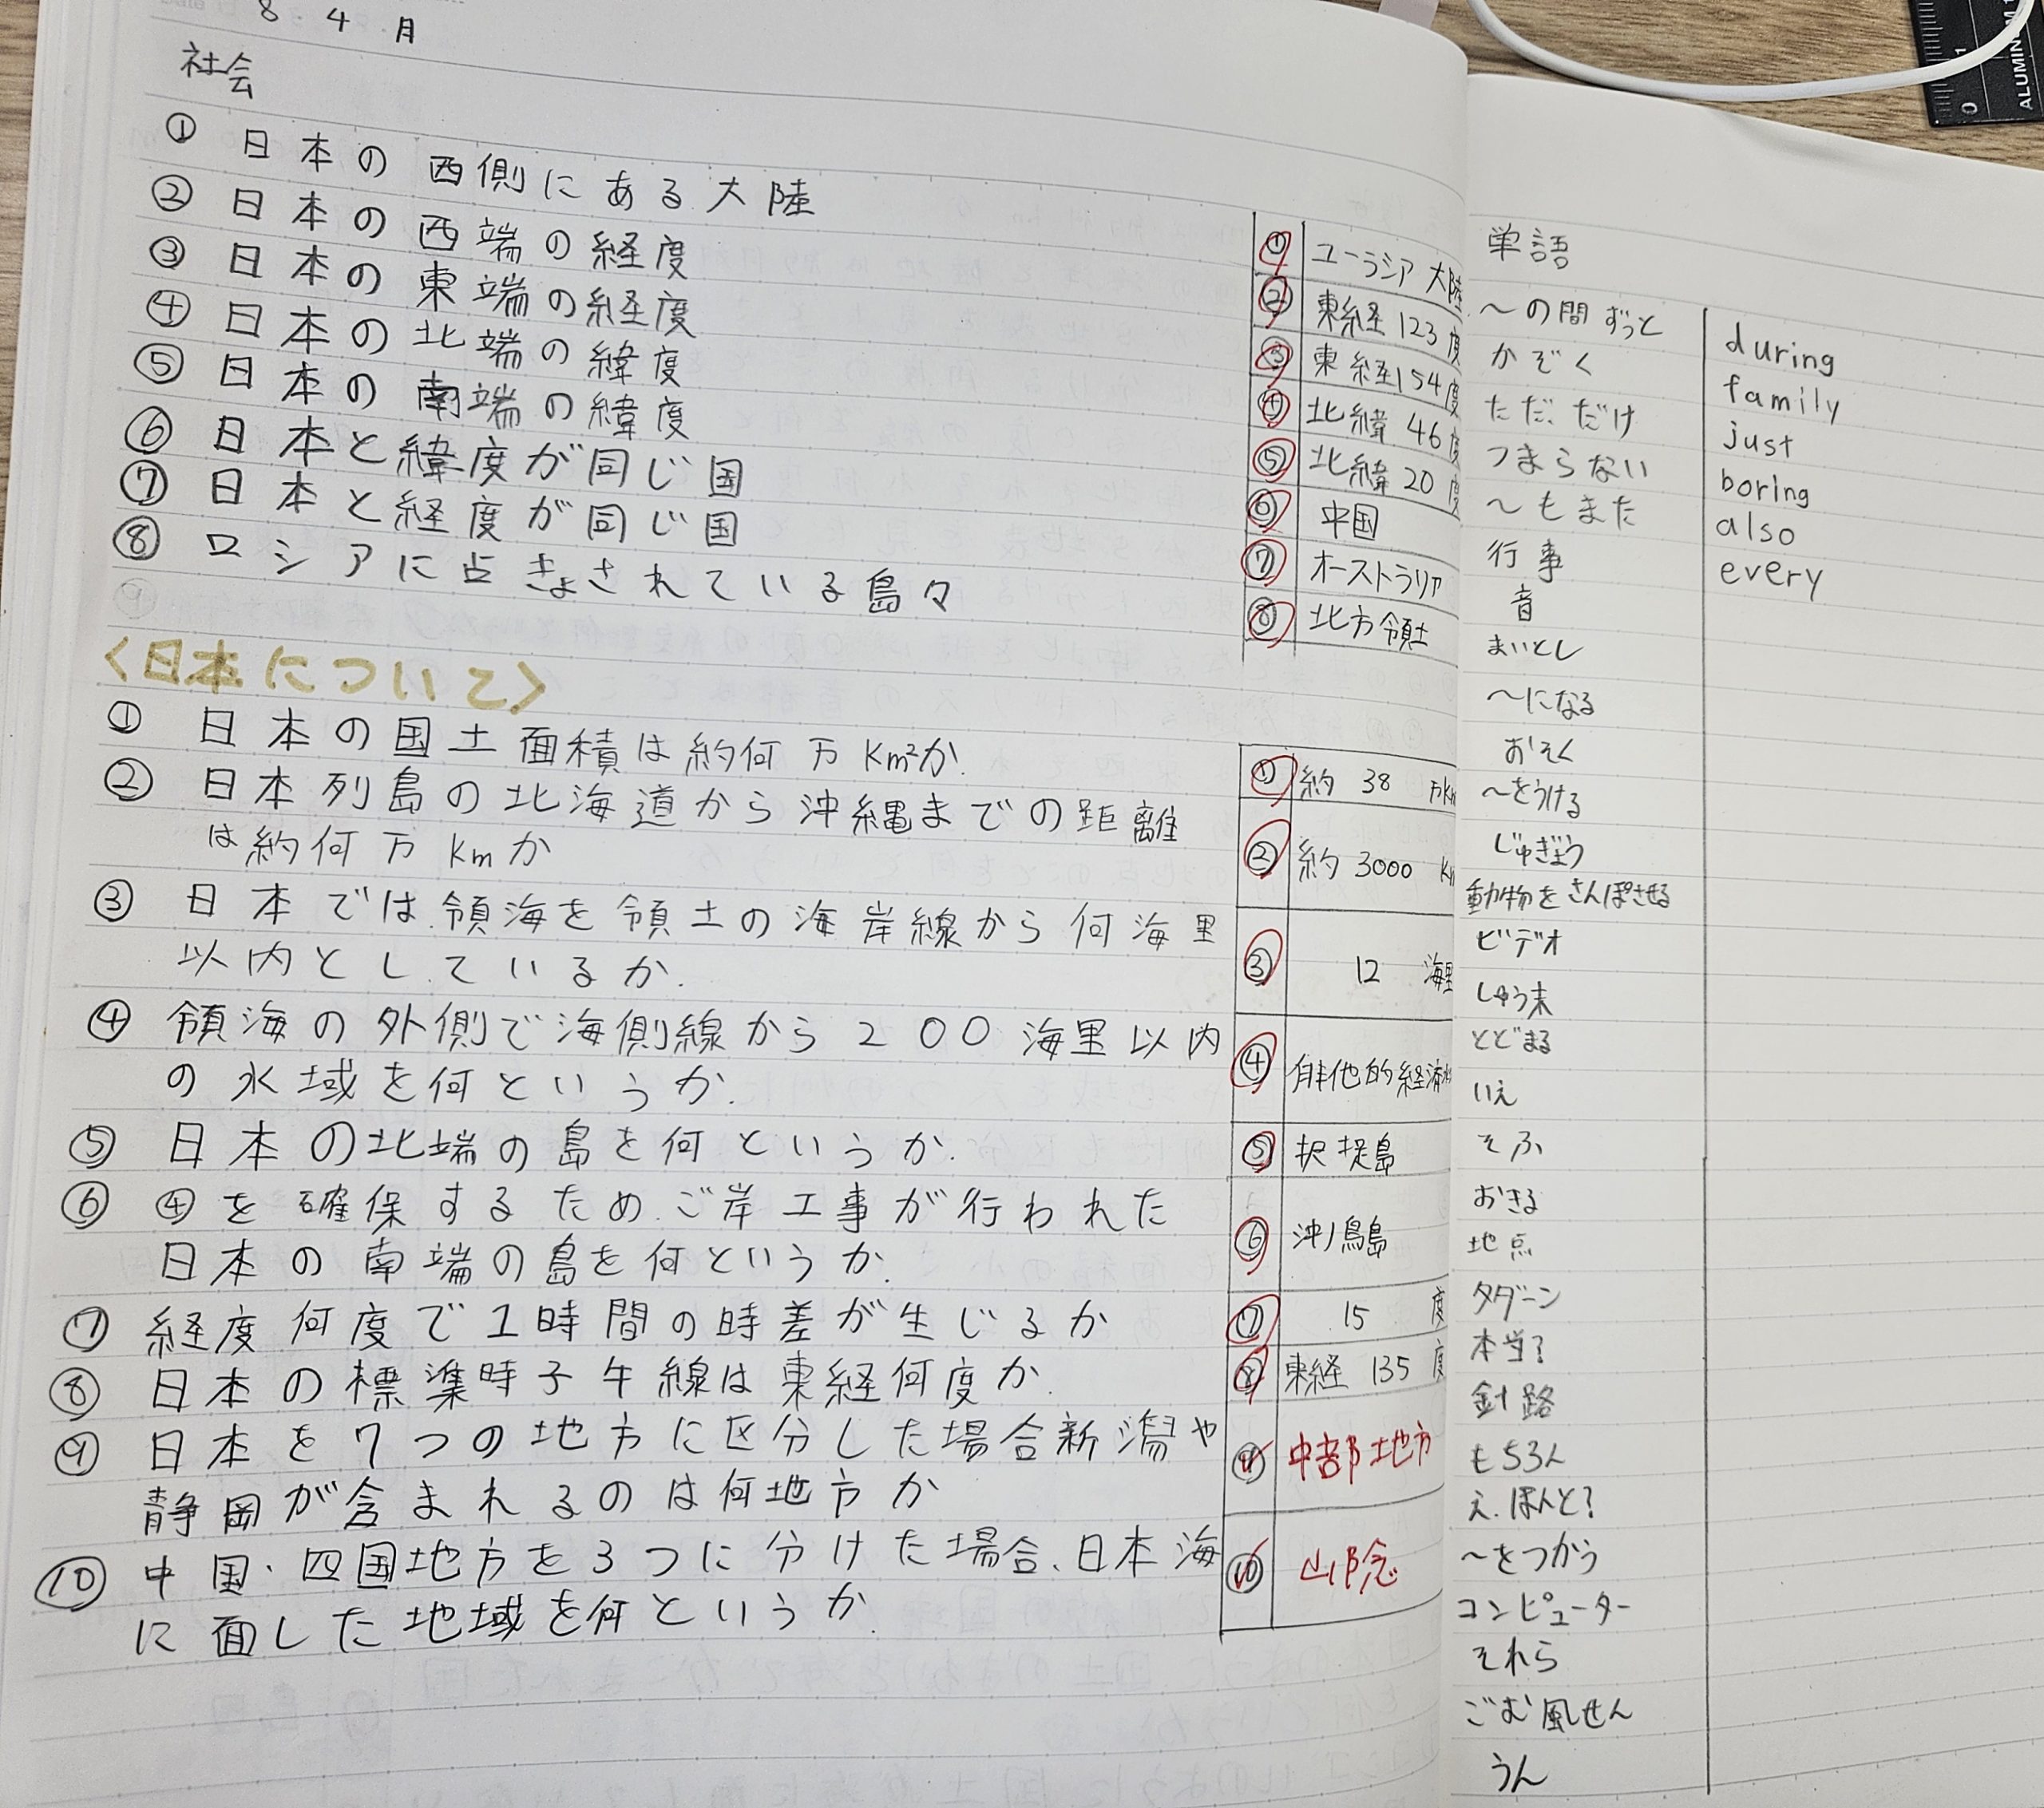 8 4 月
社会
① 日本の西側にある大陸
② 日本の西端の経度
③ 日本の東端の経度
④ 日本の北端の緯度
⑤ 日本の南端の緯度
⑥ 日本と緯度が同じ国
⑦ 日本と経度が同じ国
⑧ ロシアに占きょされている島々
① ユーラシア大陸
② 東経123度
③ 東経154度
④ 北緯46度
⑤ 北緯20度
⑥ 中国
⑦ オーストラリア
⑧ 北方領土
〈日本について〉
① 日本の国土面積は約何万Km²か.
② 日本列島の北海道から沖縄までの距離
は約何万Kmか
③ 日本では領海を領土の海岸線から何海里
以内としているか.
④ 領海の外側で海側線から200海里以内
の水域を何というか.
⑤ 日本の北端の島を何というか.
⑥ ④を確保するためご岸工事が行われた
日本の南端の島を何というか.
⑦ 経度何度で1時間の時差が生じるか
⑧ 日本の標準時子午線は東経何度か.
⑨ 日本を7つの地方に区分した場合新潟や
静岡が含まれるのは何地方か
⑩ 中国・四国地方を3つに分けた場合、日本海
に面した地域を何というか.
① 約 38 万Km
② 約 3000 Km
③ 12 海里
④ 排他的経済水
⑤ 択捉島
⑥ 沖ノ鳥島
⑦ 15 度
⑧ 東経 135 度
⑨ 中部地方
⑩ 山陰
単語
〜の間ずっと during
かぞく family
ただ、だけ just
つまらない boring
〜もまた also
行事 every
音
まいとし
〜になる
おそく
〜をうける
じゅぎょう
動物をさんぽさせる
ビデオ
しゅう末
とどまる
いえ
そふ
おきる
地点
タダーン
本当?
針路
もちろん
え、ほんと?
〜をつかう
コンピューター
それら
ごむ風せん
うん
0
1
ALUMINUM